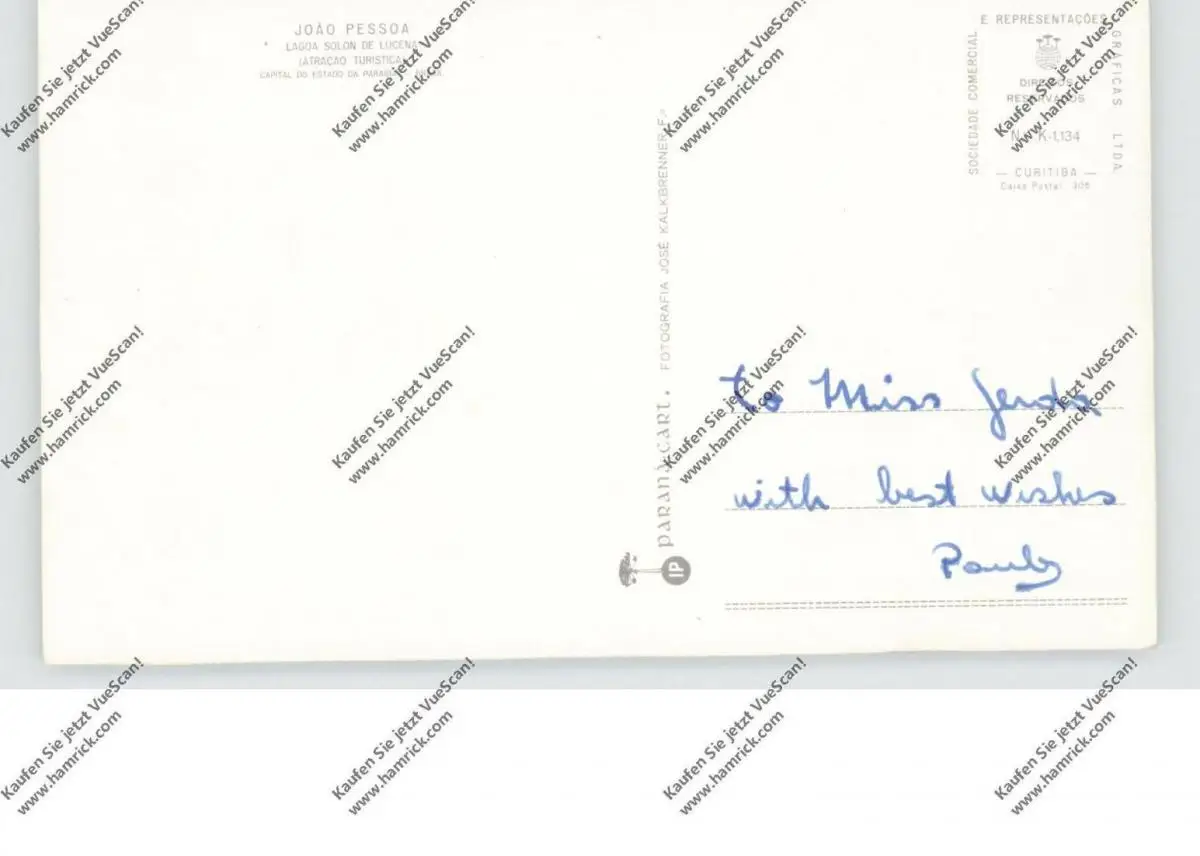 JOÃO PESSOA
LAGOA SOLON DE LUCENA
(ATRAÇÃO TURÍSTICA)
CAPITAL DO ESTADO DA PARAÍBA
E REPRESENTAÇÕES
SOCIEDADE COMERCIAL
GRÁFICAS LTDA.
DIREITOS
RESERVADOS
K-1.134
— CURITIBA —
Caixa Postal 306
PARANÁ-CART. FOTOGRAFIA JOSÉ KALKBRENNER F.
IP
to Miss Jerda
with best wishes
Kaufen Sie jetzt VueScan!
www.hamrick.com
Kaufen Sie jetzt VueScan!
www.hamrick.com
Kaufen Sie jetzt VueScan!
www.hamrick.com
Kaufen Sie jetzt VueScan!
www.hamrick.com
Kaufen Sie jetzt VueScan!
www.hamrick.com
Kaufen Sie jetzt VueScan!
www.hamrick.com
Kaufen Sie jetzt VueScan!
www.hamrick.com
Kaufen Sie jetzt VueScan!
www.hamrick.com
Kaufen Sie jetzt VueScan!
www.hamrick.com
Kaufen Sie jetzt VueScan!
www.hamrick.com
Kaufen Sie jetzt VueScan!
www.hamrick.com
Kaufen Sie jetzt VueScan!
www.hamrick.com